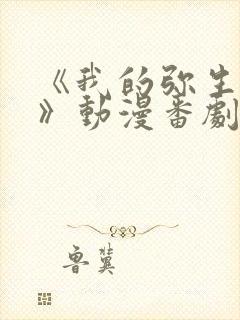 《我的弥生
》動漫番劇
魯冀